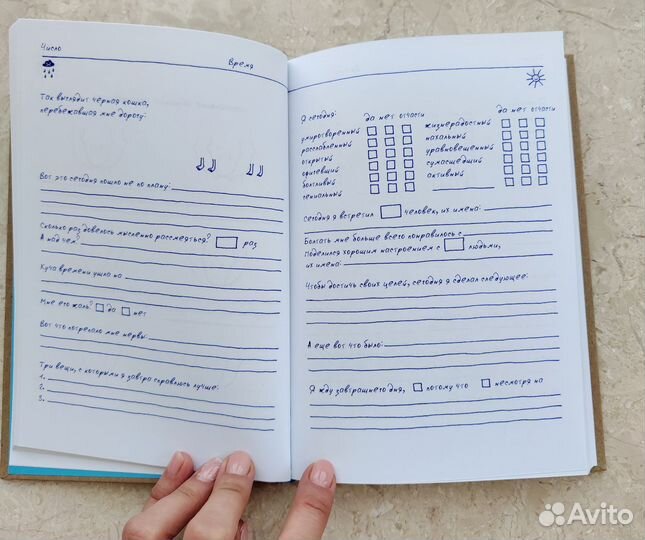 Число
Время
Так выглядит черная кошка,
перебежавшая мне дорогу:
Вот это сегодня пошло не по плану:
Сколько раз довелось мысленно рассмеяться? раз
А над чем?
Куча времени ушла на
Мне его жаль? да нет
Вот что потрепало мне нервы:
Три вещи, с которыми я завтра справлюсь лучше:
1.
2.
3.
Я сегодня:
да нет отчасти
умиротворенный
расслабленный
открытый
одетевший
болтливый
гениальный
да нет отчасти
жизнерадостный
нахальный
уравновешенный
сумасшедший
активный
Сегодня я встретил человек, их имена:
Болтать мне больше всего понравилось с
Поделился хорошим настроением с людьми,
их имена:
Чтобы достичь своих целей, сегодня я сделал следующее:
А еще вот что было:
Я жду завтрашнего дня, потому что несмотря на
Avito